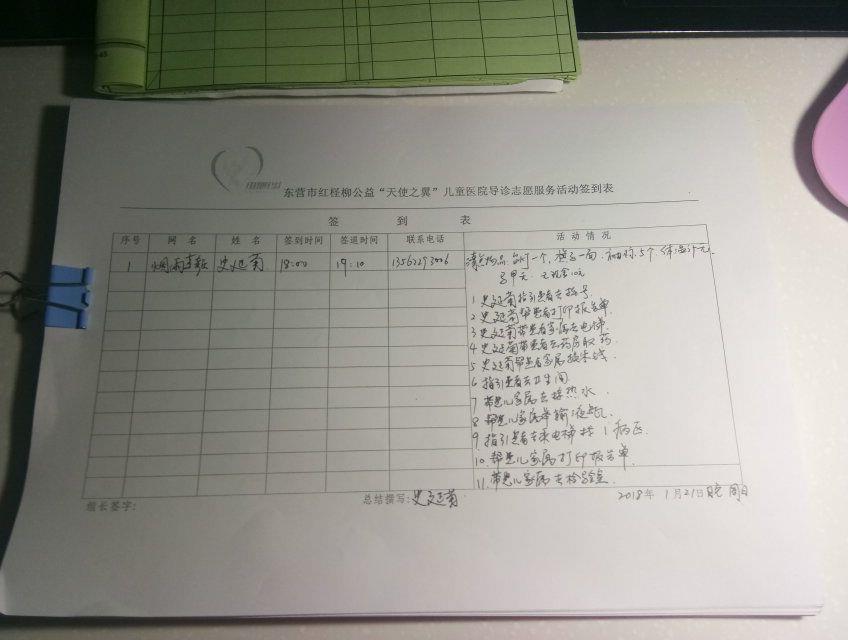 东营市红柽柳公益“天使之翼”儿童医院导诊志愿服务活动签到表
签 到 表
序号 网 名 姓 名 签到时间 签退时间 联系电话 活 动 情 况
1 烟雨 史延菊 18:00 19:10 清点物品 一个,
1 史延菊指引患者去挂号
2 史延菊帮患者打印报告单
3 史延菊带患者家属去电梯
4 史延菊带患者去药房取药
5 史延菊帮患者家属接
6 指引患者去卫生间
7 带患儿家属去接热水
8 帮患儿家属举输液瓶
9 指引患者去乘电梯找 病区
10 帮患儿家属打印报告单
11 带患儿家属去检验室
组长签字: 总结撰写:史延菊 2018年 1月21日晚 周日